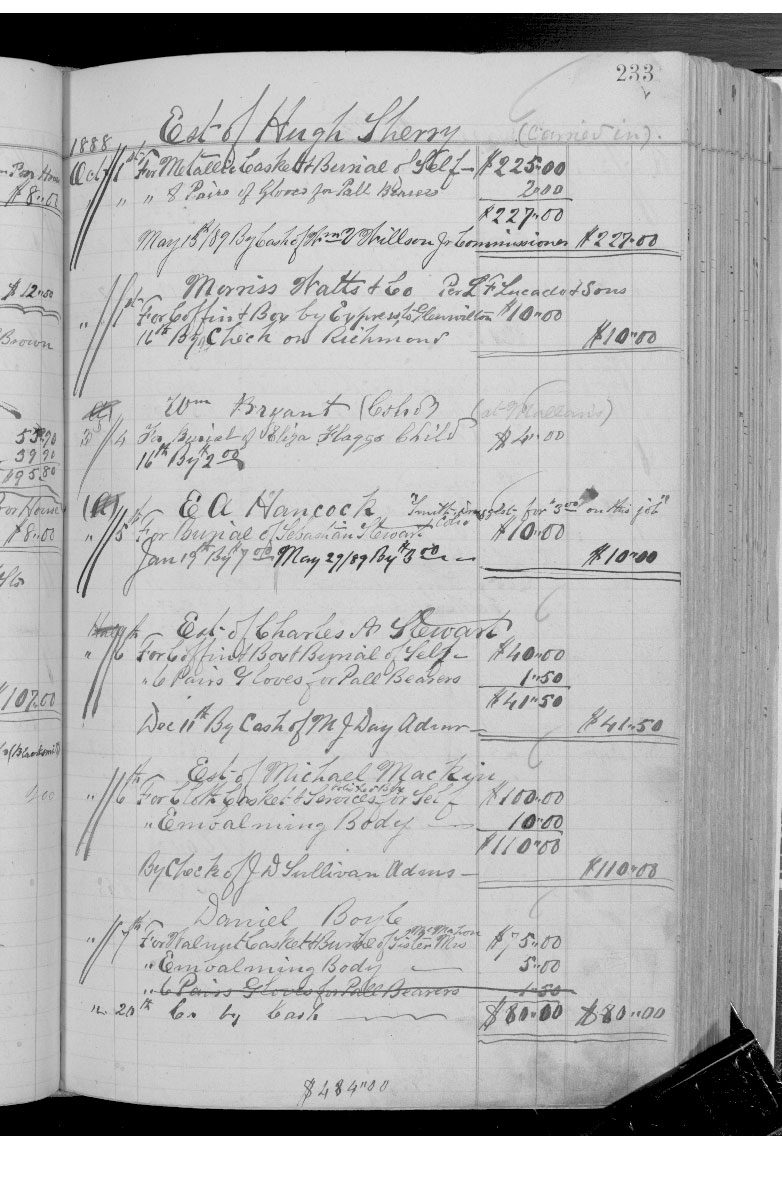 233
Est of Hugh Sherry (Carried in).
1888
Oct 1st For Metallic Casket & Burial of Self — $225.00
" " " 8 Pairs of Gloves for Pall Bearers 2.00
$227.00
May 15th/89 By Cash of Wm V Willson Jr Commissioner $227.00
Morriss Watts & Co Per L F Lucado & Sons
" 1st For Coffin & Box by Express to Glenwilton $10.00
16th By Check on Richmond $10.00
Wm Bryant (Cold) (at Mallan's)
" 4 For Burial of Eliza Flaggs Child $4.00
16th By 2.00
E A Hancock "Smith Druggist for $3.00 on this job"
" 5th For Burial of Sebastian Stewart Cold $10.00
Jan 19th By $7.00 May 29/89 By $3.00 — $10.00
Est of Charles A Stewart
" 6th For Coffin & Box & Burial of Self — $40.00
" 6 Pairs Gloves for Pall Bearers 1.50
$41.50
Dec 11th By Cash of M J Day Admr — $41.50
Est of Michael Mackin
" 6th For Cloth Casket & Services for Self $100.00
" Embalming Body — 10.00
$110.00
By Check of J D Sullivan Adms — $110.00
Daniel Boyle
" 7th For Walnut Casket & Burial of Sister Mrs $75.00
" Embalming Body — 5.00
" 6 Pairs Gloves for Pall Bearers 1.50
" 20th Cr by Cash — $80.00 $80.00
$484.00
$8.00
$12.50
Brown
55.90
39.90
195.80
For House
$8.00
$107.00
(Blacksmith)
4.00